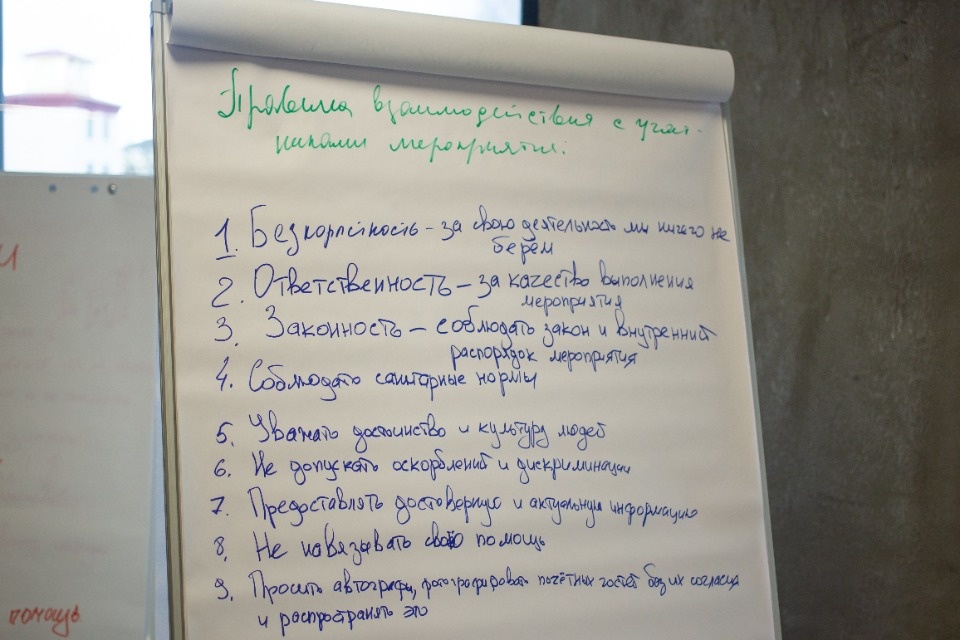 Правила взаимодействия с участ-
никами мероприятия:
1. Безкорпстность - за свою деятельность мы ничего не
берём
2. Ответственность - за качество выполнения
мероприятия
3. Законность - соблюдать закон и внутренний
распорядок мероприятия
4. Соблюдать санитарные нормы
5. Уважать достоинство и культуру людей
6. Не допускать оскорблений и дискриминации
7. Предоставлять достоверную и актуальную информацию
8. Не навязывать свою помощь
9. Просить автографы, фотографировать почётных гостей без их согласия
и распространять это
помощь